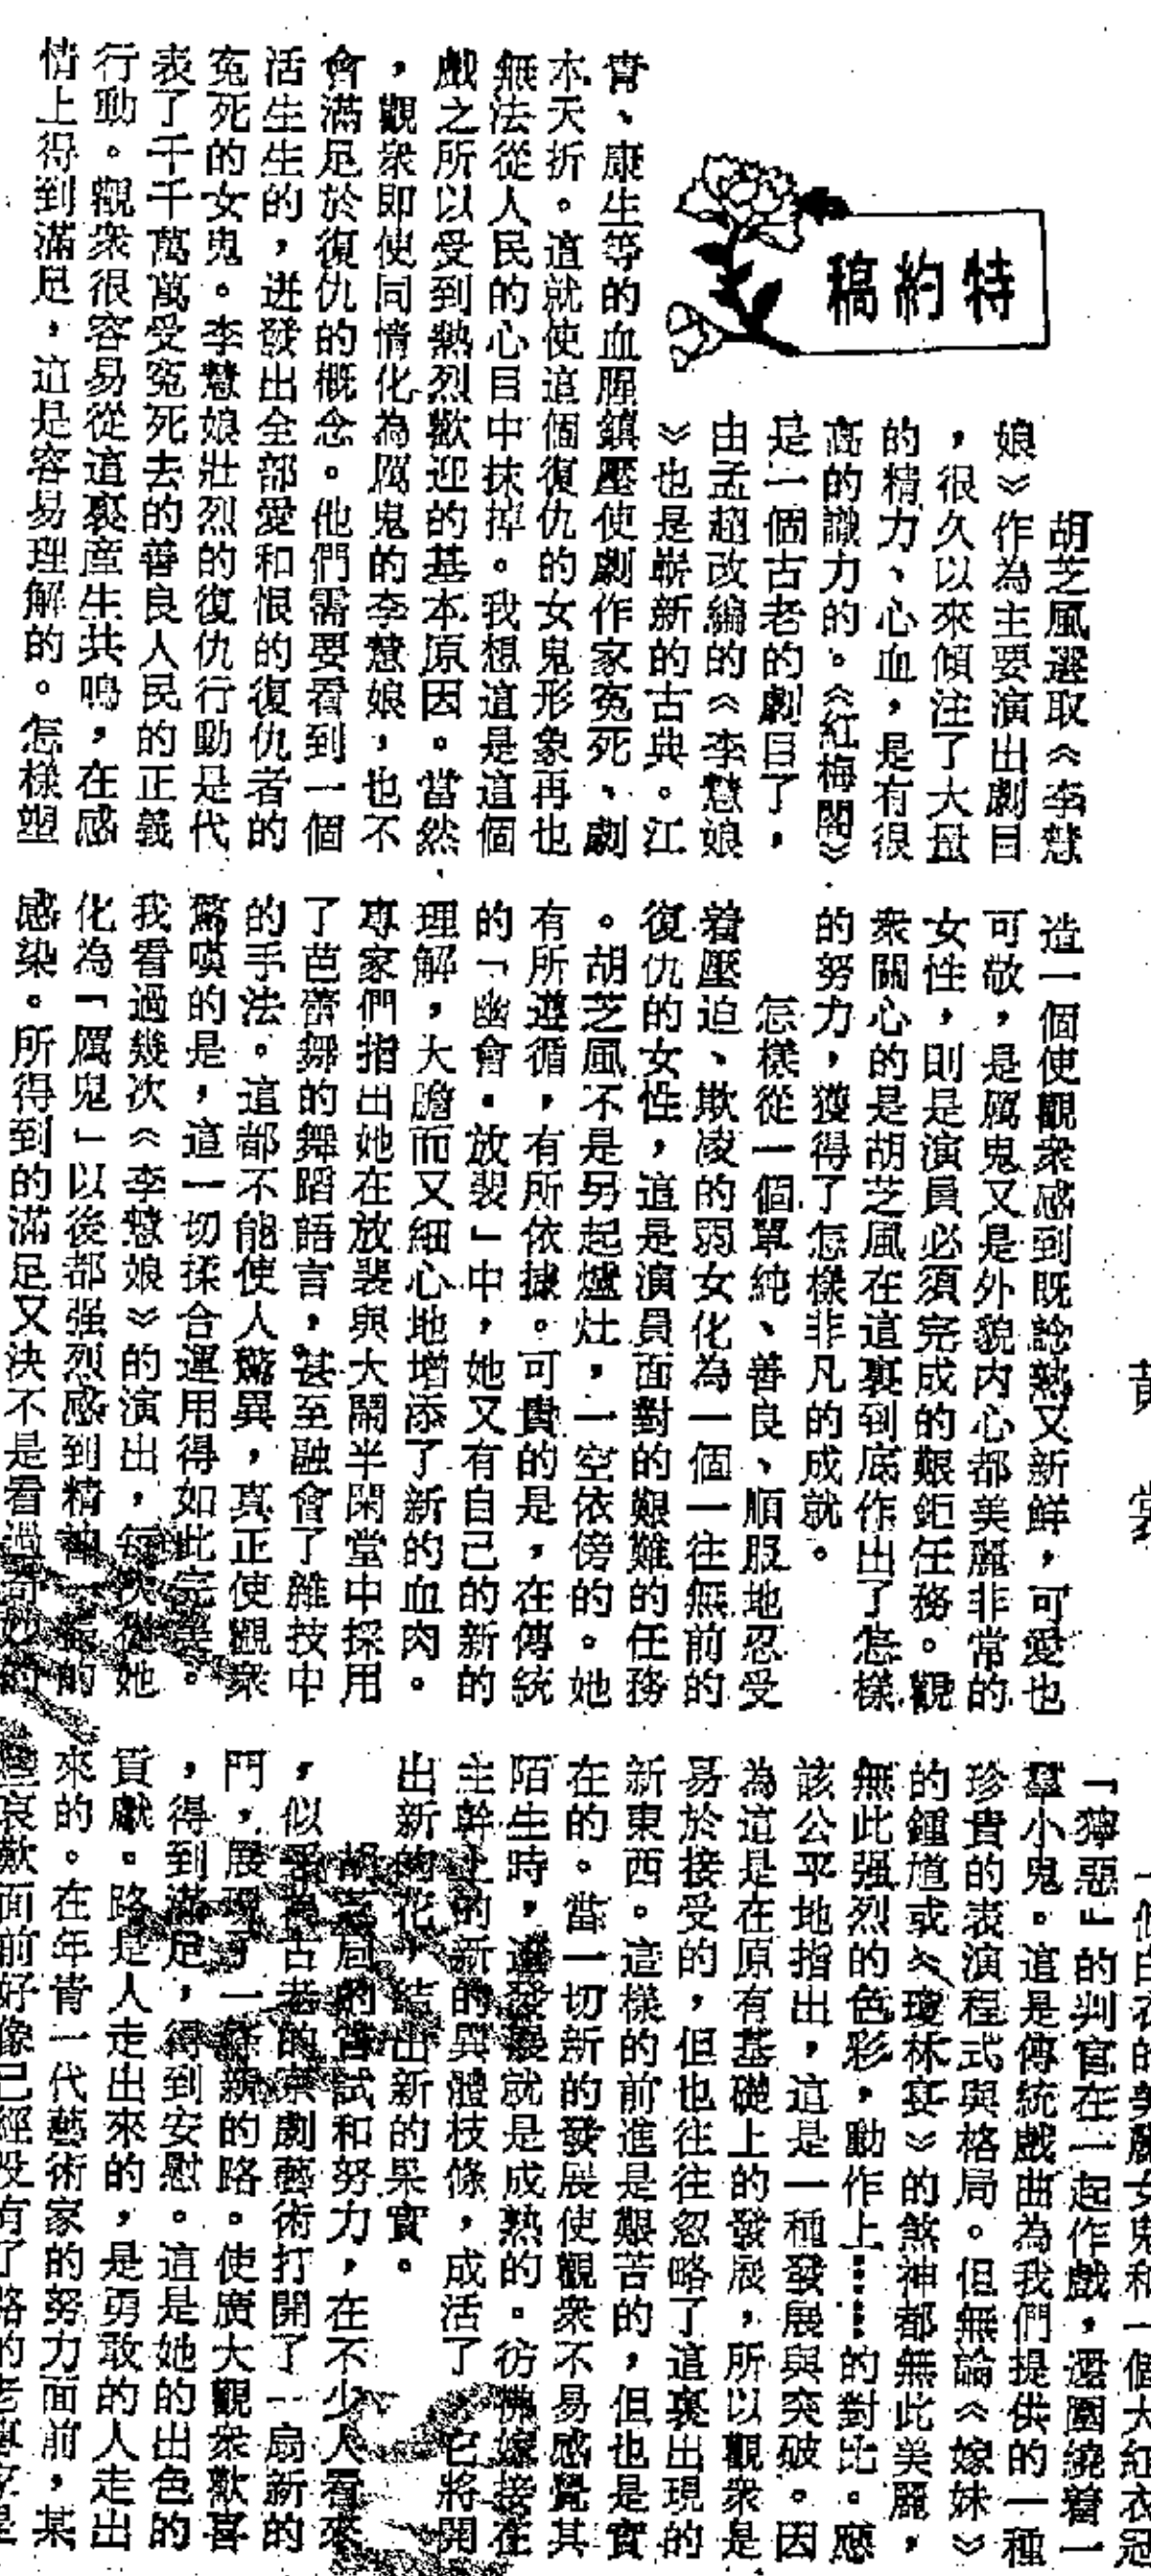 特約稿
黃 裳
胡芝風選取《李慧
娘》作為主要演出劇目
，很久以來傾注了大量
的精力、心血，是有很
高的識力的。《紅梅閣》
是一個古老的劇目了，
由孟超改編的《李慧娘
》也是嶄新的古典。江
青、康生等的血腥鎮壓使劇作家冤死、劇
本夭折。這就使這個復仇的女鬼形象再也
無法從人民的心目中抹掉。我想這是這個
戲之所以受到熱烈歡迎的基本原因。當然
，觀衆即使同情化為厲鬼的李慧娘，也不
會滿足於復仇的概念。他們需要看到一個
活生生的，迸發出全部愛和恨的復仇者的
冤死的女鬼。李慧娘壯烈的復仇行動是代
表了千千萬萬受冤死去的善良人民的正義
行動。觀衆很容易從這裏產生共鳴，在感
情上得到滿足，這是容易理解的。怎樣塑
造一個使觀衆感到既諗熟又新鮮，可愛也
可敬，是厲鬼又是外貌內心都美麗非常的
女性，則是演員必須完成的艱鉅任務。觀
衆關心的是胡芝風在這裏到底作出了怎樣
的努力，獲得了怎樣非凡的成就。
怎樣從一個單純、善良、順服地忍受
着壓迫、欺凌的弱女化為一個一往無前的
復仇的女性，這是演員面對的艱難的任務
。胡芝風不是另起爐灶，一空依傍的。她
有所遵循，有所依據。可貴的是，在傳統
的「幽會·放裴」中，她又有自己的新的
理解，大膽而又細心地增添了新的血肉。
專家們指出她在放裴與大鬧半閑堂中採用
了芭蕾舞的舞蹈語言，甚至融會了雜技中
的手法。這都不能使人驚異，真正使觀衆
驚嘆的是，這一切揉合運用得如此完美。
我看過幾次《李慧娘》的演出，每次從她
化為「厲鬼」以後都强烈感到精神的
感染。所得到的滿足又決不是看過
一個白衣的美麗女鬼和一個大紅衣冠
「獰惡」的判官在一起作戲，還圍繞着一
羣小鬼。這是傳統戲曲為我們提供的一種
珍貴的表演程式與格局。但無論《嫁妹》
的鍾馗或《瓊林宴》的煞神都無此美麗，
無此强烈的色彩，動作上……的對比。應
該公平地指出，這是一種發展與突破。因
為這是在原有基礎上的發展，所以觀衆是
易於接受的，但也往往忽略了這裏出現的
新東西。這樣的前進是艱苦的，但也是實
在的。當一切新的發展使觀衆不易感覺其
陌生時，這發展就是成熟的。彷彿嫁接在
主幹上的新的異體枝條，成活了，它將開
出新的花，結出新的果實。
胡芝風的嘗試和努力，在不少人看來
，似乎為古老的京劇藝術打開了一扇新的
門，展現了一條新的路。使廣大觀衆歡喜
，得到滿足，得到安慰。這是她的出色的
貢獻。路是人走出來的，是勇敢的人走出
來的。在年青一代藝術家的努力面前，某
哀歎面前好像已經沒有了路的老專家是